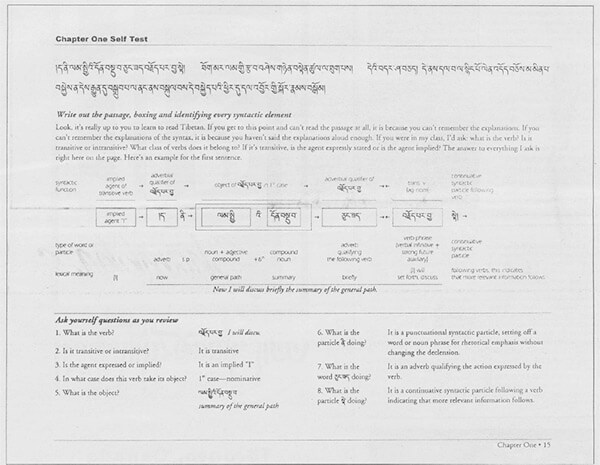 Chapter One Self Test
Write out the passage, boxing and identifying every syntactic element
Look, it's really up to you to learn to read Tibetan. If you get to this point and can't read the passage at all, it is because you can't remember the explanations. If you
can't remember the explanations of the syntax, it is because you haven't said the explanations aloud enough. If you were in my class, I'd ask: what is the verb? Is it
transitive or intransitive? What class of verbs does it belong to? If it's transitive, is the agent expressly stated or is the agent implied? The answer to everything I ask is
right here on the page. Here's an example for the first sentence.
syntactic function
implied agent of transitive verb
adverbial qualifier of བརྗོད་པར་བྱ་
object of བརྗོད་པར་བྱ་ in 1st case
adverbial qualifier of བརྗོད་པར་བྱ་
continuative syntactic particle following verb
implied agent "I"
→ ད་ ནི་ → ལམ་སྤྱི་ འི་ དོན་བསྡུ་བ་ → ཅུང་ཟད་ → བརྗོད་པར་བྱ་ སྟེ། →
type of word or particle
adverb
noun + adjective compound
+ 6th
compound noun
adverb qualifying the following verb
verb phrase [verbal infinitive + strong future auxiliary]
continuative syntactic particle
lexical meaning
[I]
now
general path
summary
briefly
[I] will set forth, discuss
following verbs, this indicates that more relevant information follows
Now I will discuss briefly the summary of the general path.
Ask yourself questions as you review
1. What is the verb? བརྗོད་པར་བྱ་ I will discu.
2. Is it transitive or intransitive? It is transitive
3. Is the agent expressed or implied? It is an implied "I"
4. In what case does this verb take its object? 1st case—nominative
5. What is the object? ལམ་སྤྱིའི་དོན་བསྡུ་བ་
summary of the general path
6. What is the particle ནི་ doing? It is a punctuational syntactic particle, setting off a
word or noun phrase for rhetorical emphasis without
changing the declention.
7. What is the word ཅུང་ཟད་ doing? It is an adverb qualifying the action expressed by the
verb.
8. What is the particle སྟེ་ doing? It is a continuative syntactic particle following a verb
indicating that more relevant information follows.
Chapter One • 15